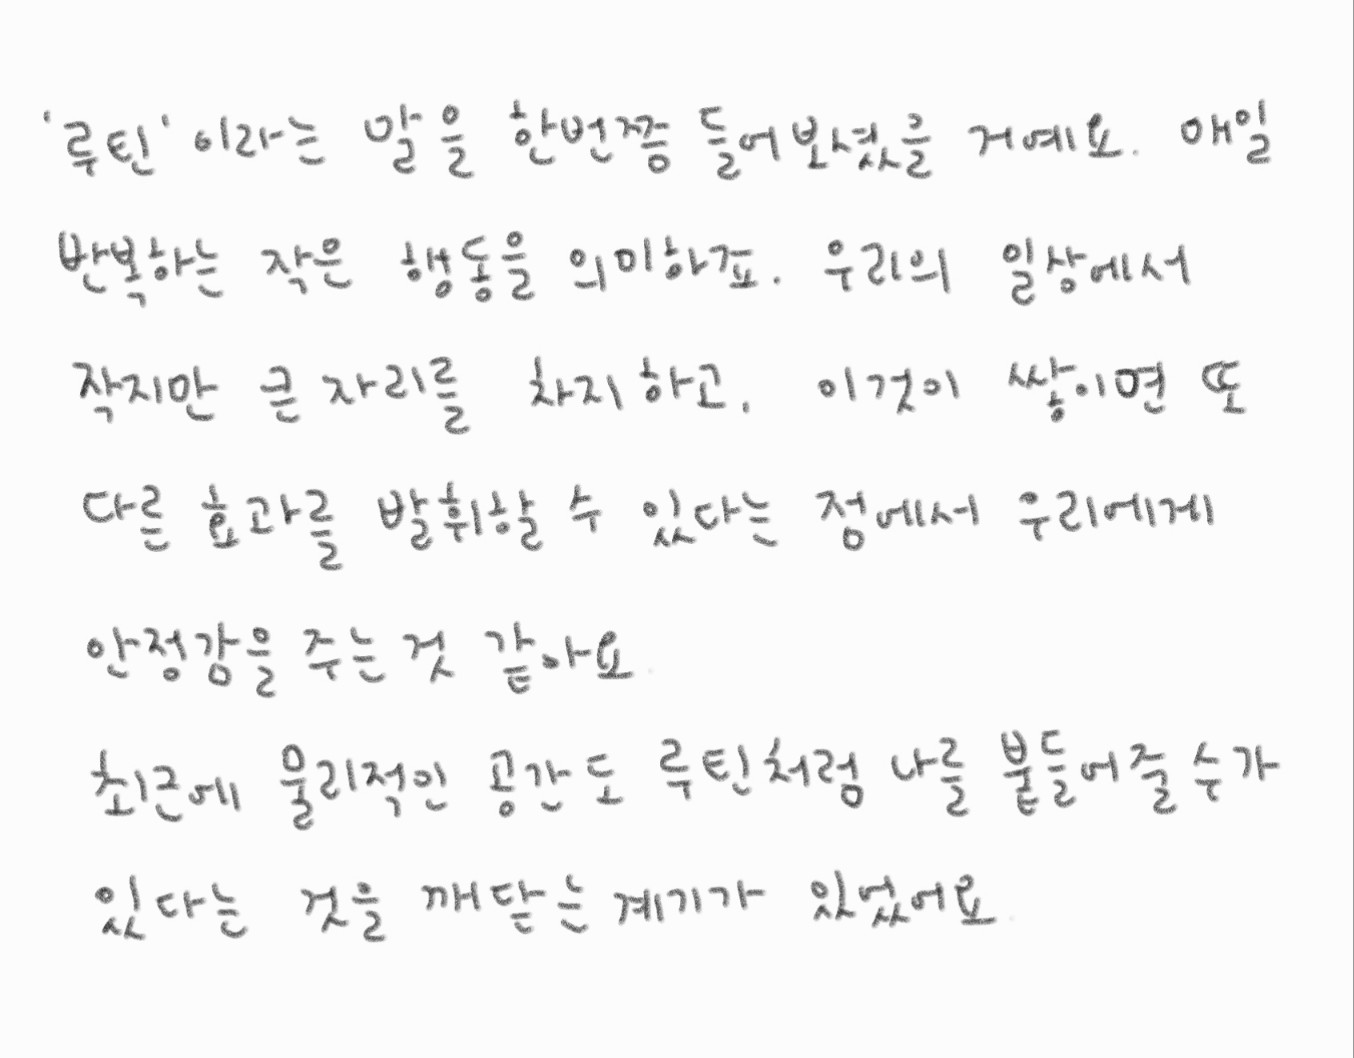 '루틴'이라는 말을 한번쯤 들어보셨을 거예요. 매일
반복하는 작은 행동을 의미하죠. 우리의 일상에서
작지만 큰 자리를 차지하고, 이것이 쌓이면 또
다른 효과를 발휘할 수 있다는 점에서 우리에게
안정감을 주는 것 같아요.
최근에 물리적인 공간도 루틴처럼 나를 붙들어줄 수가
있다는 것을 깨닫는 계기가 있었어요.